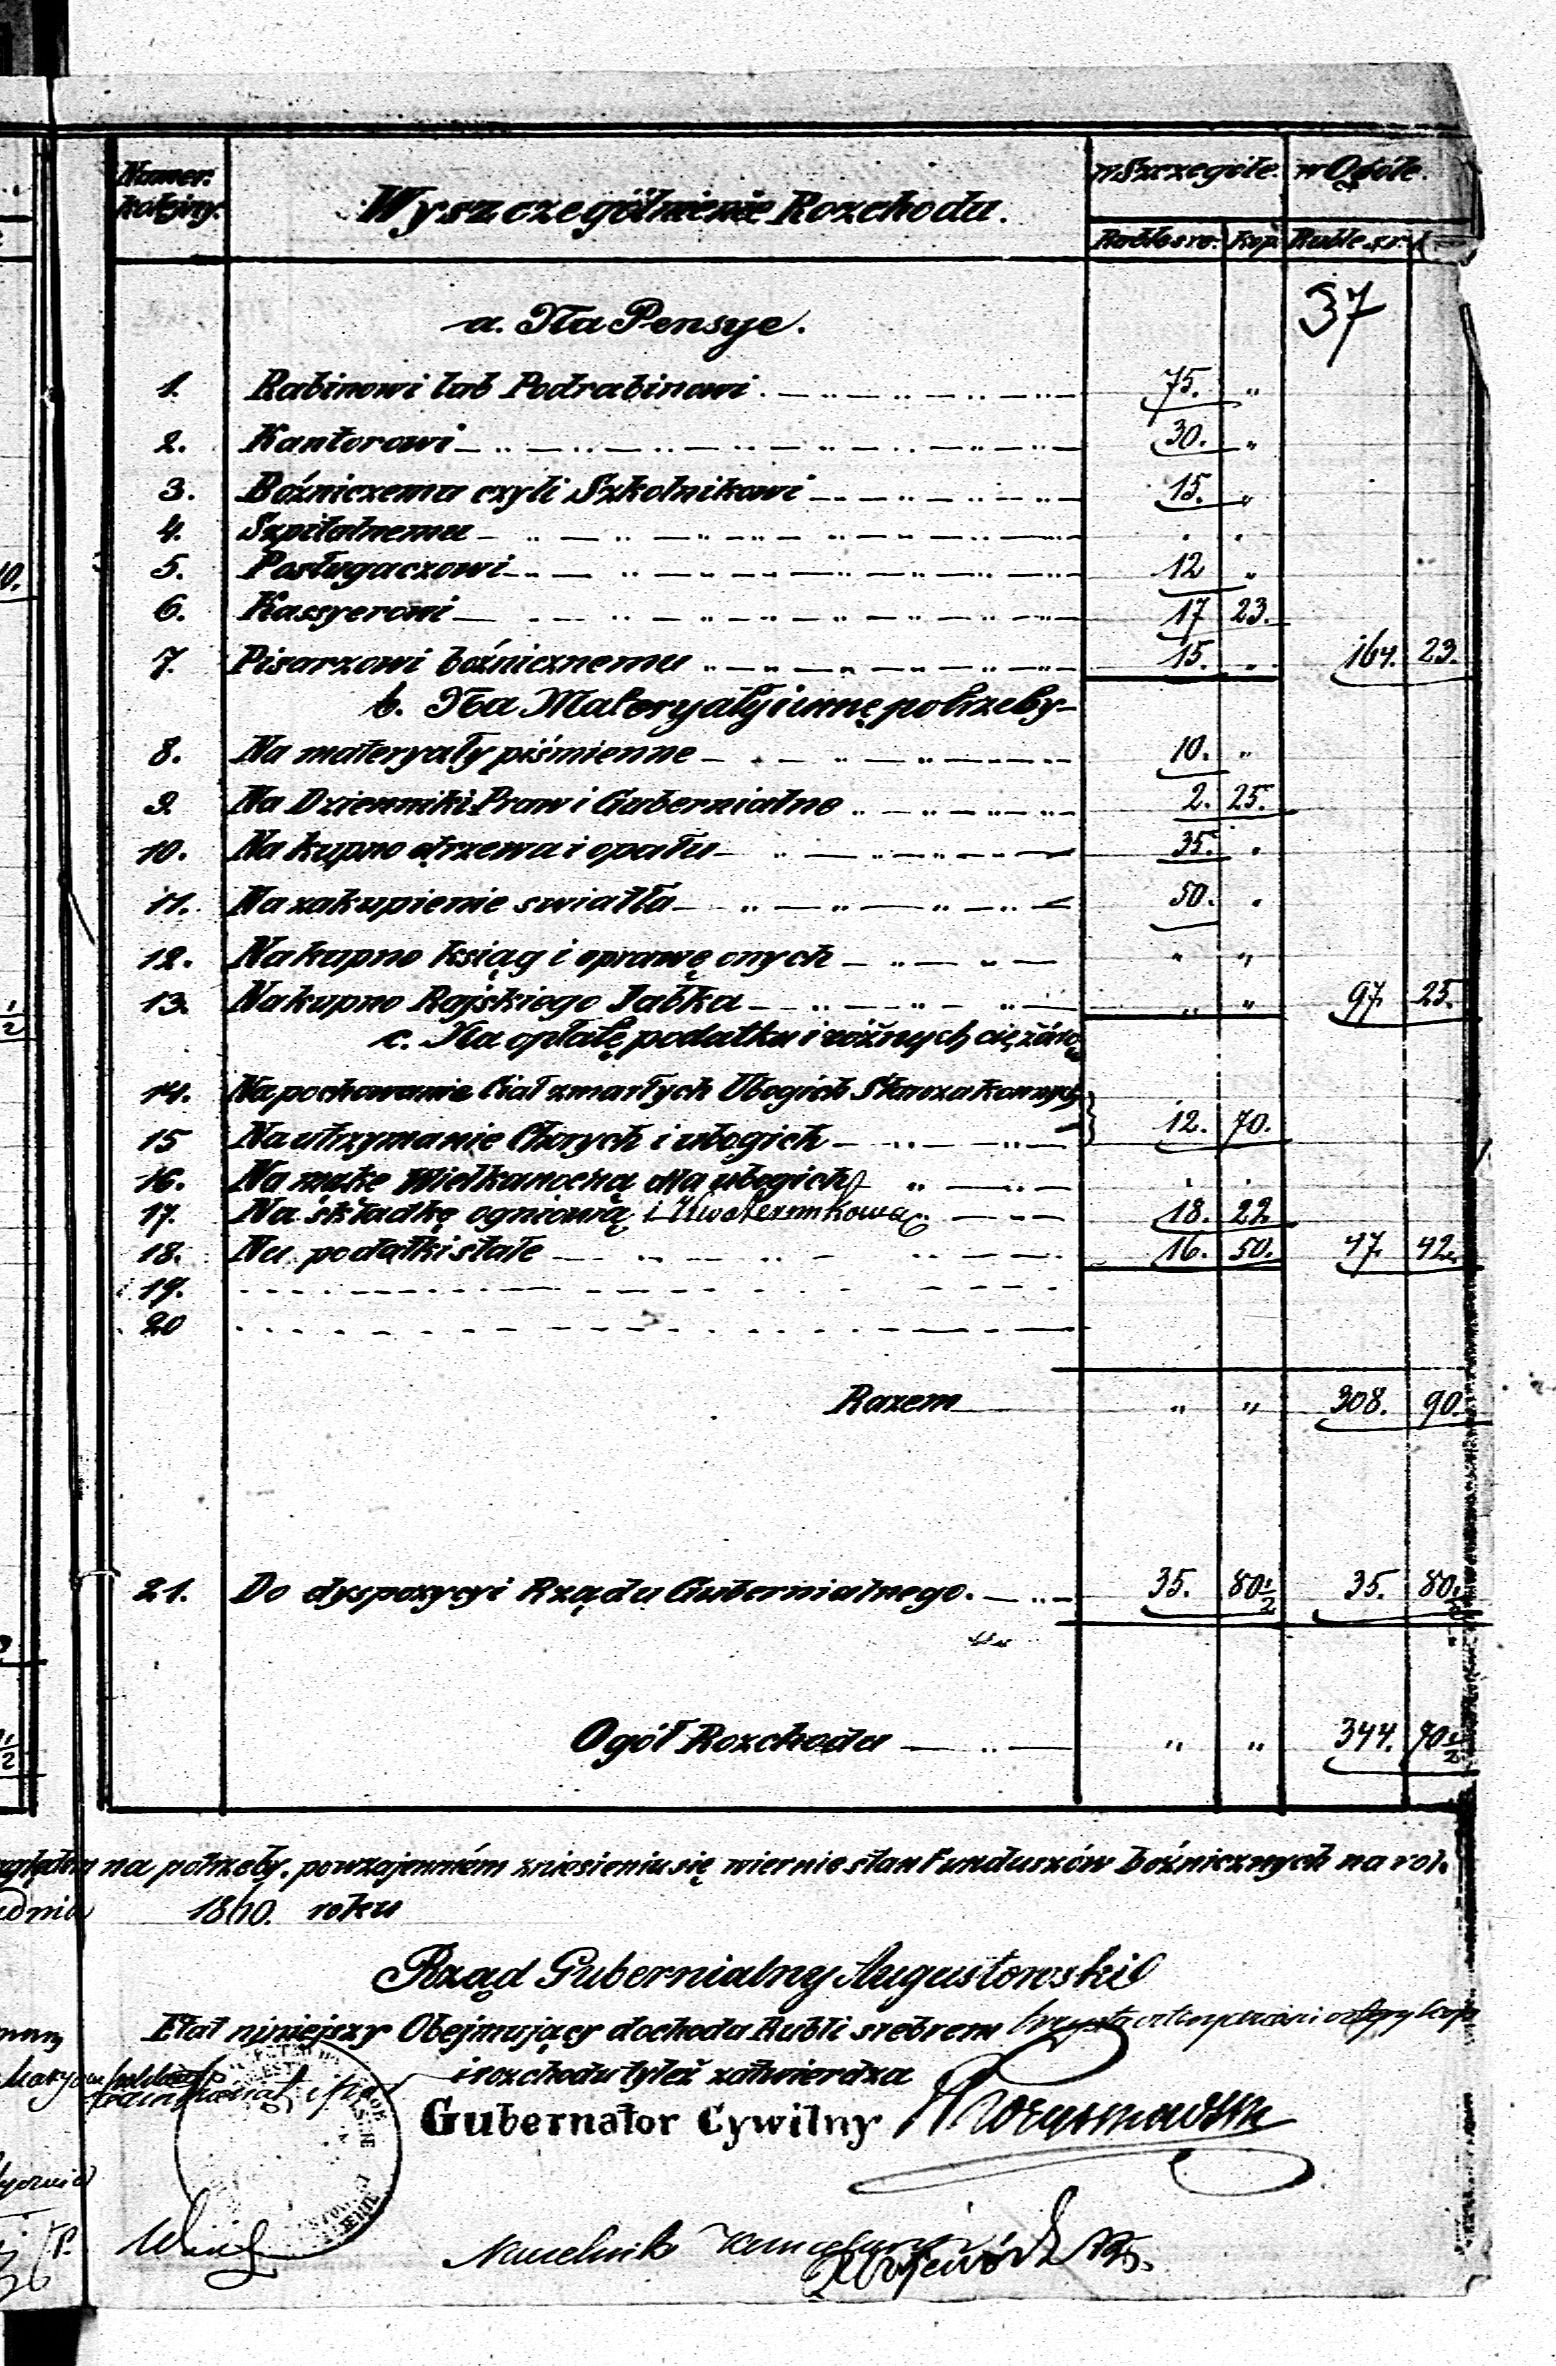 Numer kolejny.
Wyszczególnienie Rozchodu.
w Szczególe. w Ogóle.
Rublesre. Kop. Ruble sr.
37
a. Na Pensye.
1. Rabinowi lub Podrabinowi 75. "
2. Kantorowi 30. "
3. Bóżniczemu czyli Szkolnikowi 15. "
4. Szpitalnemu . .
5. Posługaczowi 12 "
6. Kassyerowi 17 23.
7. Pisarzowi bóżnicznemu 15. " 164. 23.
b. Na Materyały i inne potrzeby
8. Na materyały piśmienne 10. "
9 Na Dzienniki Praw i Gubernialne 2. 25.
10. Na kupno drzewa i opału 35. "
11. Na zakupienie swiatła 50. "
12. Na kupno ksiąg i oprawę onych " "
13. Na kupno Rajskiego Jabłka " " 97. 25.
c. Na opłatę podatku i różnych ciężarów
14. Na pochowanie Ciał zmarłych Ubogich Starozakonnych
15 Na utrzymanie Chorych i ubogich 12. 70.
16. Na mąkę Wielkanocną dla ubogich . .
17. Na składkę ogniową i Kwaterunkową 18. 22
18. Na podatki stałe 16. 50. 47. 42.
19.
20
Razem " " 308. 90.
21. Do dyspozycyi Rządu Gubernialnego. 35. 80 1/2 35. 80 1/2
Ogół Rozchodu " " 344. 70 1/2
na potrzeby. powzajemném zniesieniu się wiernie stan Funduszów bóżnicznych na rok.
1860. roku
Rząd Gubernialny Augustowski
Etat niniejszy Obejmujący dochodu Rubli srebrem trzysta czterdzieści cztery kop
i rozchodu tyleż zatwierdza
Gubernator Cywilny
Naczelnik Kancelaryi